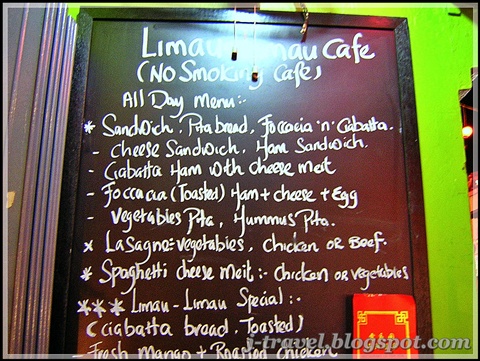 Limau Limau Cafe
(No Smoking Cafe)
All Day Menu:-
* Sandwich. Pita bread, Foccacia 'n' Ciabatta.
- Cheese Sandwich, Ham Sandwich.
- Ciabatta Ham with cheese melt
- Foccacia (Toasted) Ham + cheese + Egg
- Vegetables Pita, Hummus Pita.
x Lasagne:- vegetables, Chicken or Beef.
* Spaghetti cheese melt:- Chicken or vegetables
*** Limau - Limau Special:-
(ciabatta bread, Toasted)
- Fresh Mango + Roasted Chicken
i-travel.blogspot.com